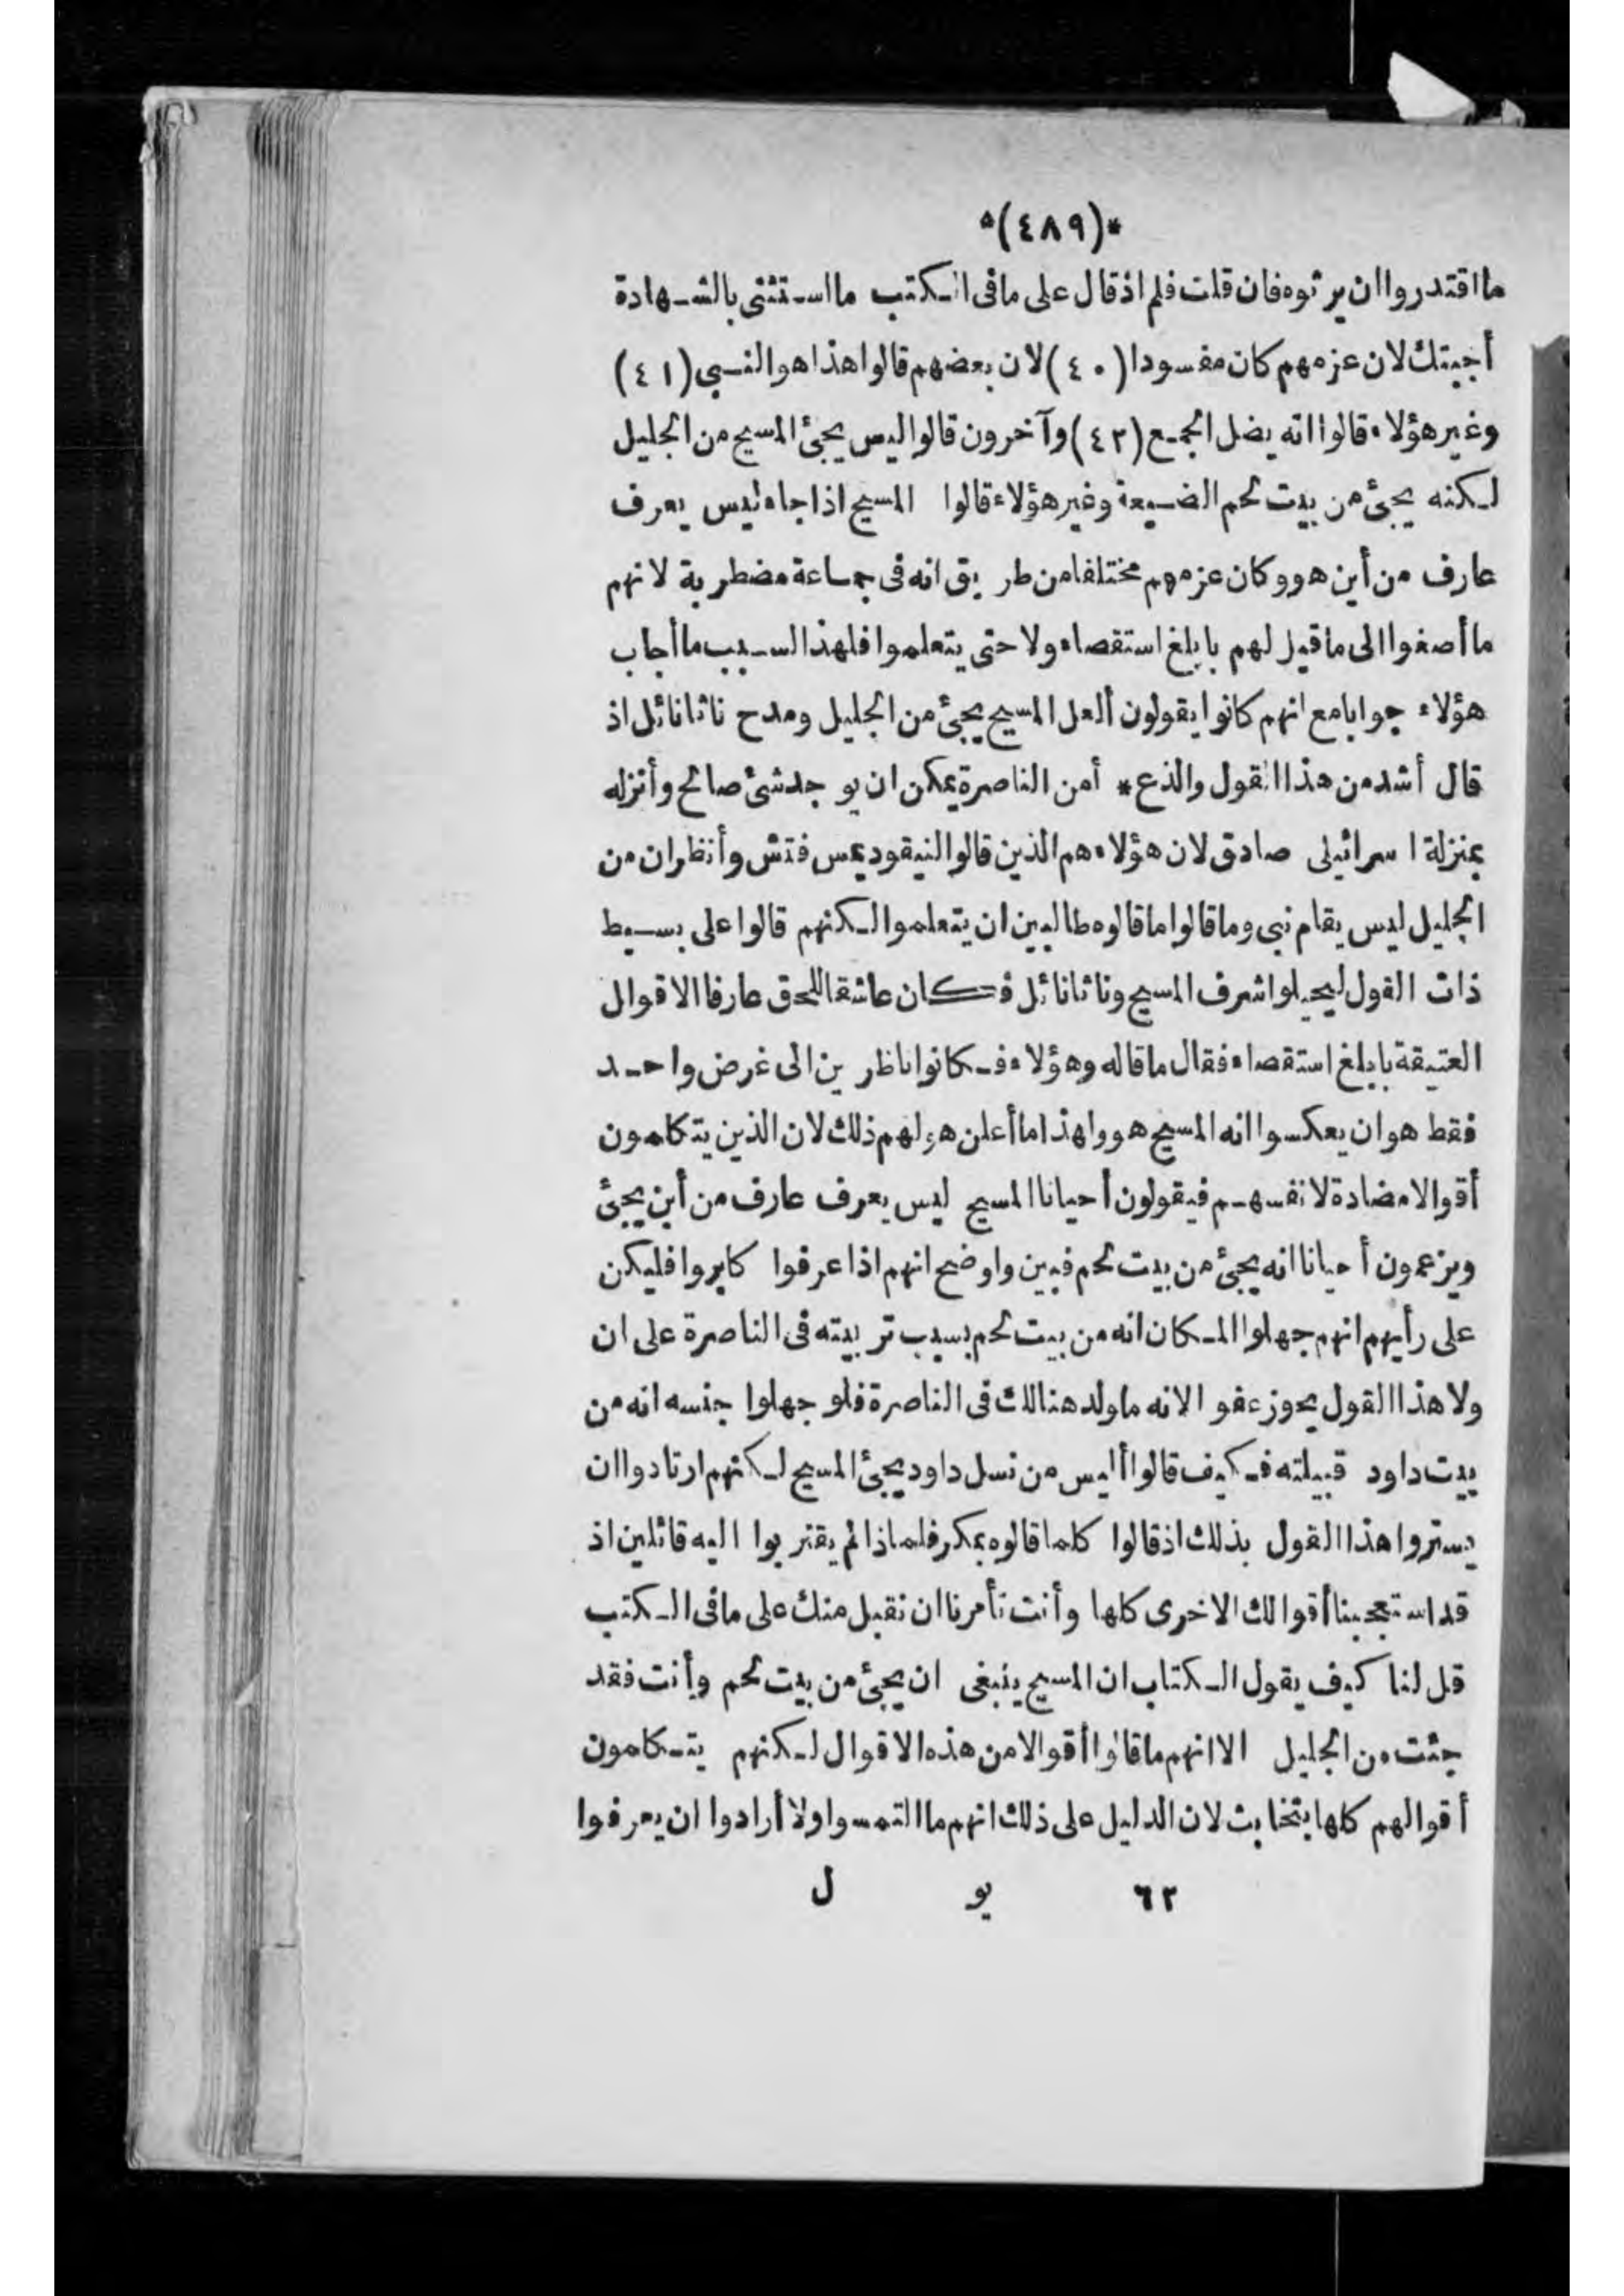 *(٤٨٩)*
ما اقتدروا ان يرثوه فان قلت فلم اذ قال على ما فى الكتب ما استثنى بالشهادة
أجبتك لان عزمهم كان مفسودا (٤٠) لان بعضهم قالوا هذا هو النبى (٤١)
وغير هؤلاء قالوا انه يضل الجمع (٤٢) وآخرون قالوا ليس يجئ المسيح من الجليل
لكنه يجئ من بيت لحم الضيعة وغير هؤلاء قالوا المسيح اذا جاء ليس يعرف
عارف من أين هو وكان عزمهم مختلفا من طريق انه فى جماعة مضطربة لانهم
ما أصغوا الى ما قيل لهم بابلغ استقصاء ولا حتى يتعلموا فلهذا السبب ما أجاب
هؤلاء جوابا مع انهم كانوا يقولون ألعل المسيح يجئ من الجليل ومدح ناثانائل اذ
قال أشد من هذا القول والذع * أمن الناصرة يمكن ان يوجد شئ صالح وأنزله
بمنزلة اسرائيلى صادق لان هؤلاء هم الذين قالوا لنيقوديمس فتش وأنظر ان من
الجليل ليس يقام نبى وما قالوا ما قالوه طالبين ان يتعلموا لكنهم قالوا على بسيط
ذات القول ليحيلوا شرف المسيح وناثانائل فكان عاشقا للحق عارفا الاقوال
العتيقة بابلغ استقصاء فقال ما قاله وهؤلاء فكانوا ناظرين الى غرض واحد
فقط هو ان يعكسوا انه المسيح هو ولهذا ما أعلن هو لهم ذلك لان الذين يتكلمون
أقوالا مضادة لانفسهم فيقولون أحيانا المسيح ليس يعرف عارف من أين يجئ
ويزعمون أحيانا انه يجئ من بيت لحم فبين واوضح انهم اذا عرفوا كابروا فليكن
على رأيهم انهم جهلوا المكان انه من بيت لحم بسبب تربيته فى الناصرة على ان
ولا هذا القول يحوز عفوا لانه ما ولد هنالك فى الناصرة فلو جهلوا جنسه انه من
بيت داود قبيلته فكيف قالوا أليس من نسل داود يجئ المسيح لكنهم ارتادوا ان
يستروا هذا القول بذلك اذ قالوا كلما قالوه بمكر فلماذا لم يقتربوا اليه قائلين اذ
قد استعجبنا أقوالك الاخرى كلها وأنت تأمرنا ان نقبل منك على ما فى الكتب
قل لنا كيف يقول الكتاب ان المسيح ينبغى ان يجئ من بيت لحم وأنت فقد
جئت من الجليل الا انهم ما قالوا أقوالا من هذه الاقوال لكنهم يتكلمون
أقوالهم كلها بتخابث لان الدليل على ذلك انهم ما التمسوا ولا أرادوا ان يعرفوا
٦٢ يو ل